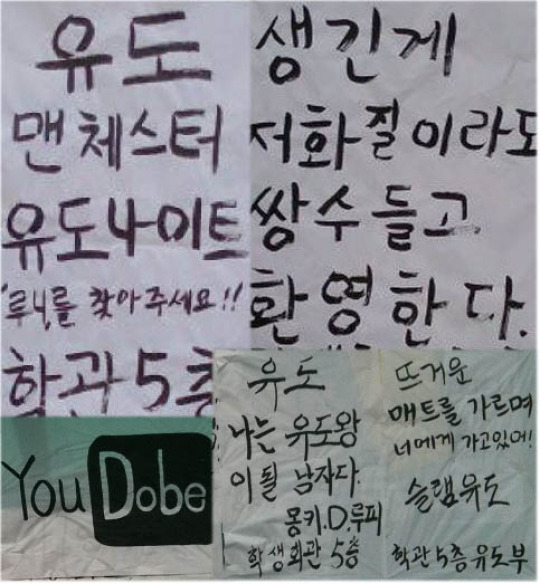 유도
맨체스터
유도나이트
'루니'를 찾아주세요!!
학관 5층
생긴게
저화질이라도
쌍수 들고
환영한다.
YouDobe
유도
나는 유도왕
이 될 남자다.
몽키.D.루피
학생회관 5층
뜨거운
매트를 가르며
너에게 가고있어!
슬램유도
학관 5층 유도부